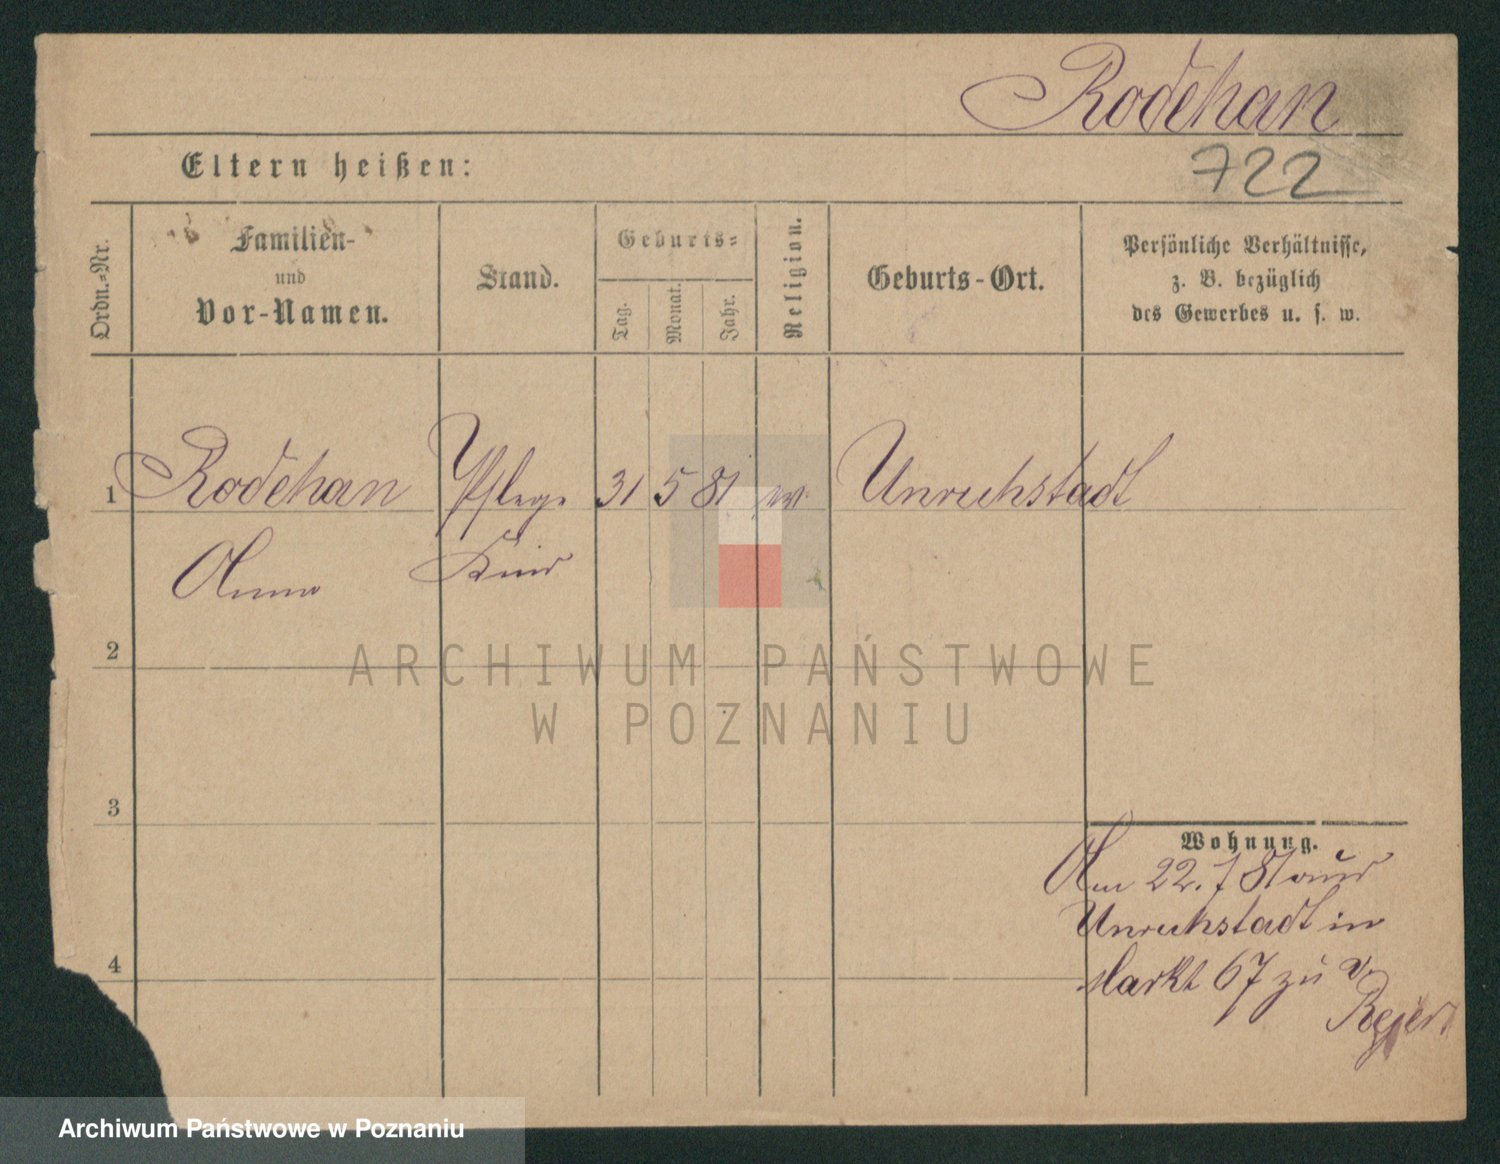 Rodehan
Eltern heißen:
722
Ordn.-Nr.
Familien-
und
Vor-Namen.
Stand.
Geburts-
Tag.
Monat.
Jahr.
Religion.
Geburts-Ort.
Persönliche Verhältnisse,
z. B. bezüglich
des Gewerbes u. s. w.
1 Rodehan Pflege 31 5 81 Unruhstadt
Anna Kind
2
ARCHIWUM PAŃSTWOWE
W POZNANIU
3
Wohnung.
Am 22. 7 81 aus
Unruhstadt in
Markt 67 zu v.
4
Archiwum Państwowe w Poznaniu